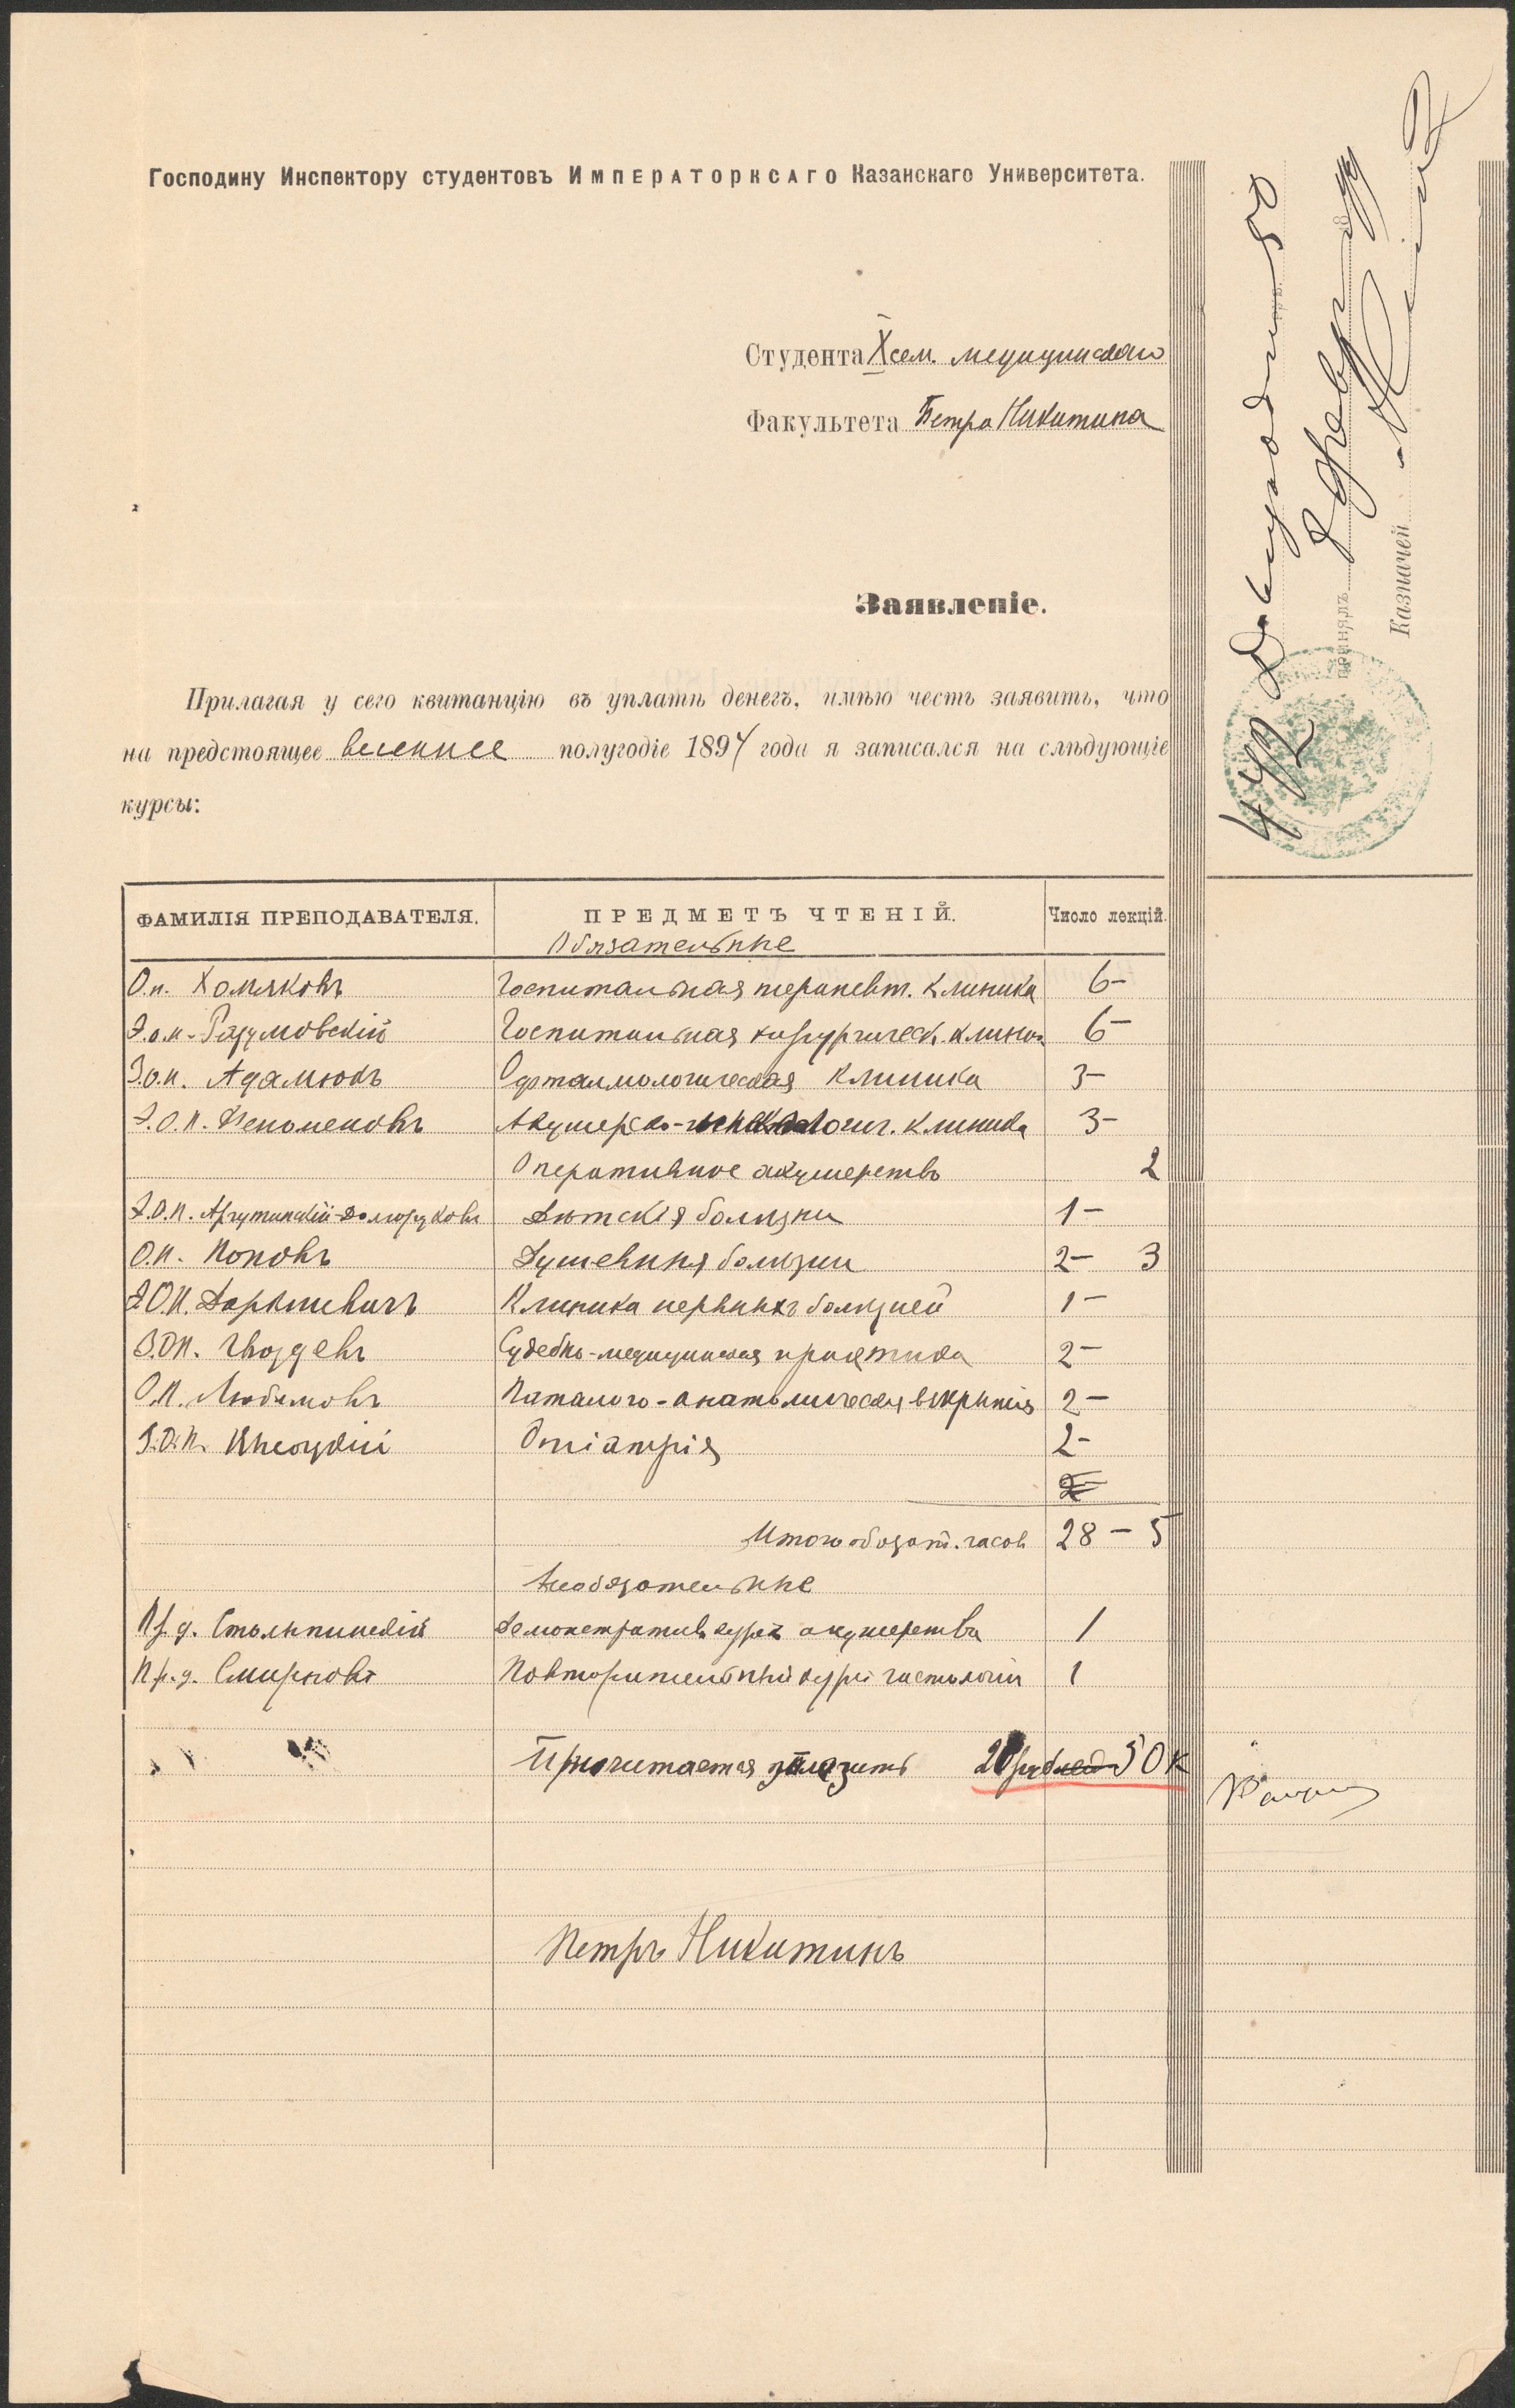 Господину Инспектору студентовъ Императорксаго Казанскаго Университета.
Студента X сем. медицинскаго
Факультета Петра Никитина
Заявленіе.
Прилагая у сего квитанцію въ уплатѣ денегъ, имѣю честь заявить, что
на предстоящее весеннее полугодіе 1894 года я записался на слѣдующіе
курсы:
ФАМИЛІЯ ПРЕПОДАВАТЕЛЯ. ПРЕДМЕТЪ ЧТЕНІЙ. Число лекцій.
Обязательные
О.п. Хомяковъ Госпитальная терапевт. клиника 6-
Э.о.п. Разумовскій Госпитальная хирургическ. клиник 6-
З.о.п. Адамюкъ Офталмологическая клиника 3-
Э.О.П. Феноменовъ Акушерско- клиника 3-
Оперативное акушерствъ 2
Э.О.П. Аргутинскій-Долгоруковъ Дѣтскія болѣзни 1-
О.П. Поповъ Душевныя болѣзни 2- 3
Э.О.П. Даркшевичъ Клиника нервныхъ болѣзней 1-
З.О.П. Гвоздевъ Судебно-медицинская практика 2-
О.П. Любимовъ Паталого-анатомическія вскрытія 2-
Отіатрія 2-
Итого обязат. часов 28 - 5
Необязательные
Пр.д. Столыпинскій Демонстратив. курсъ акушерства 1
Пр.д. Смирновъ Повторительный курсъ гистологіи 1
Причитается уплатить 20 рублей 50 к
Петръ Никитинъ
442 Двадцать 50
принялъ 7 Февр
Казначей